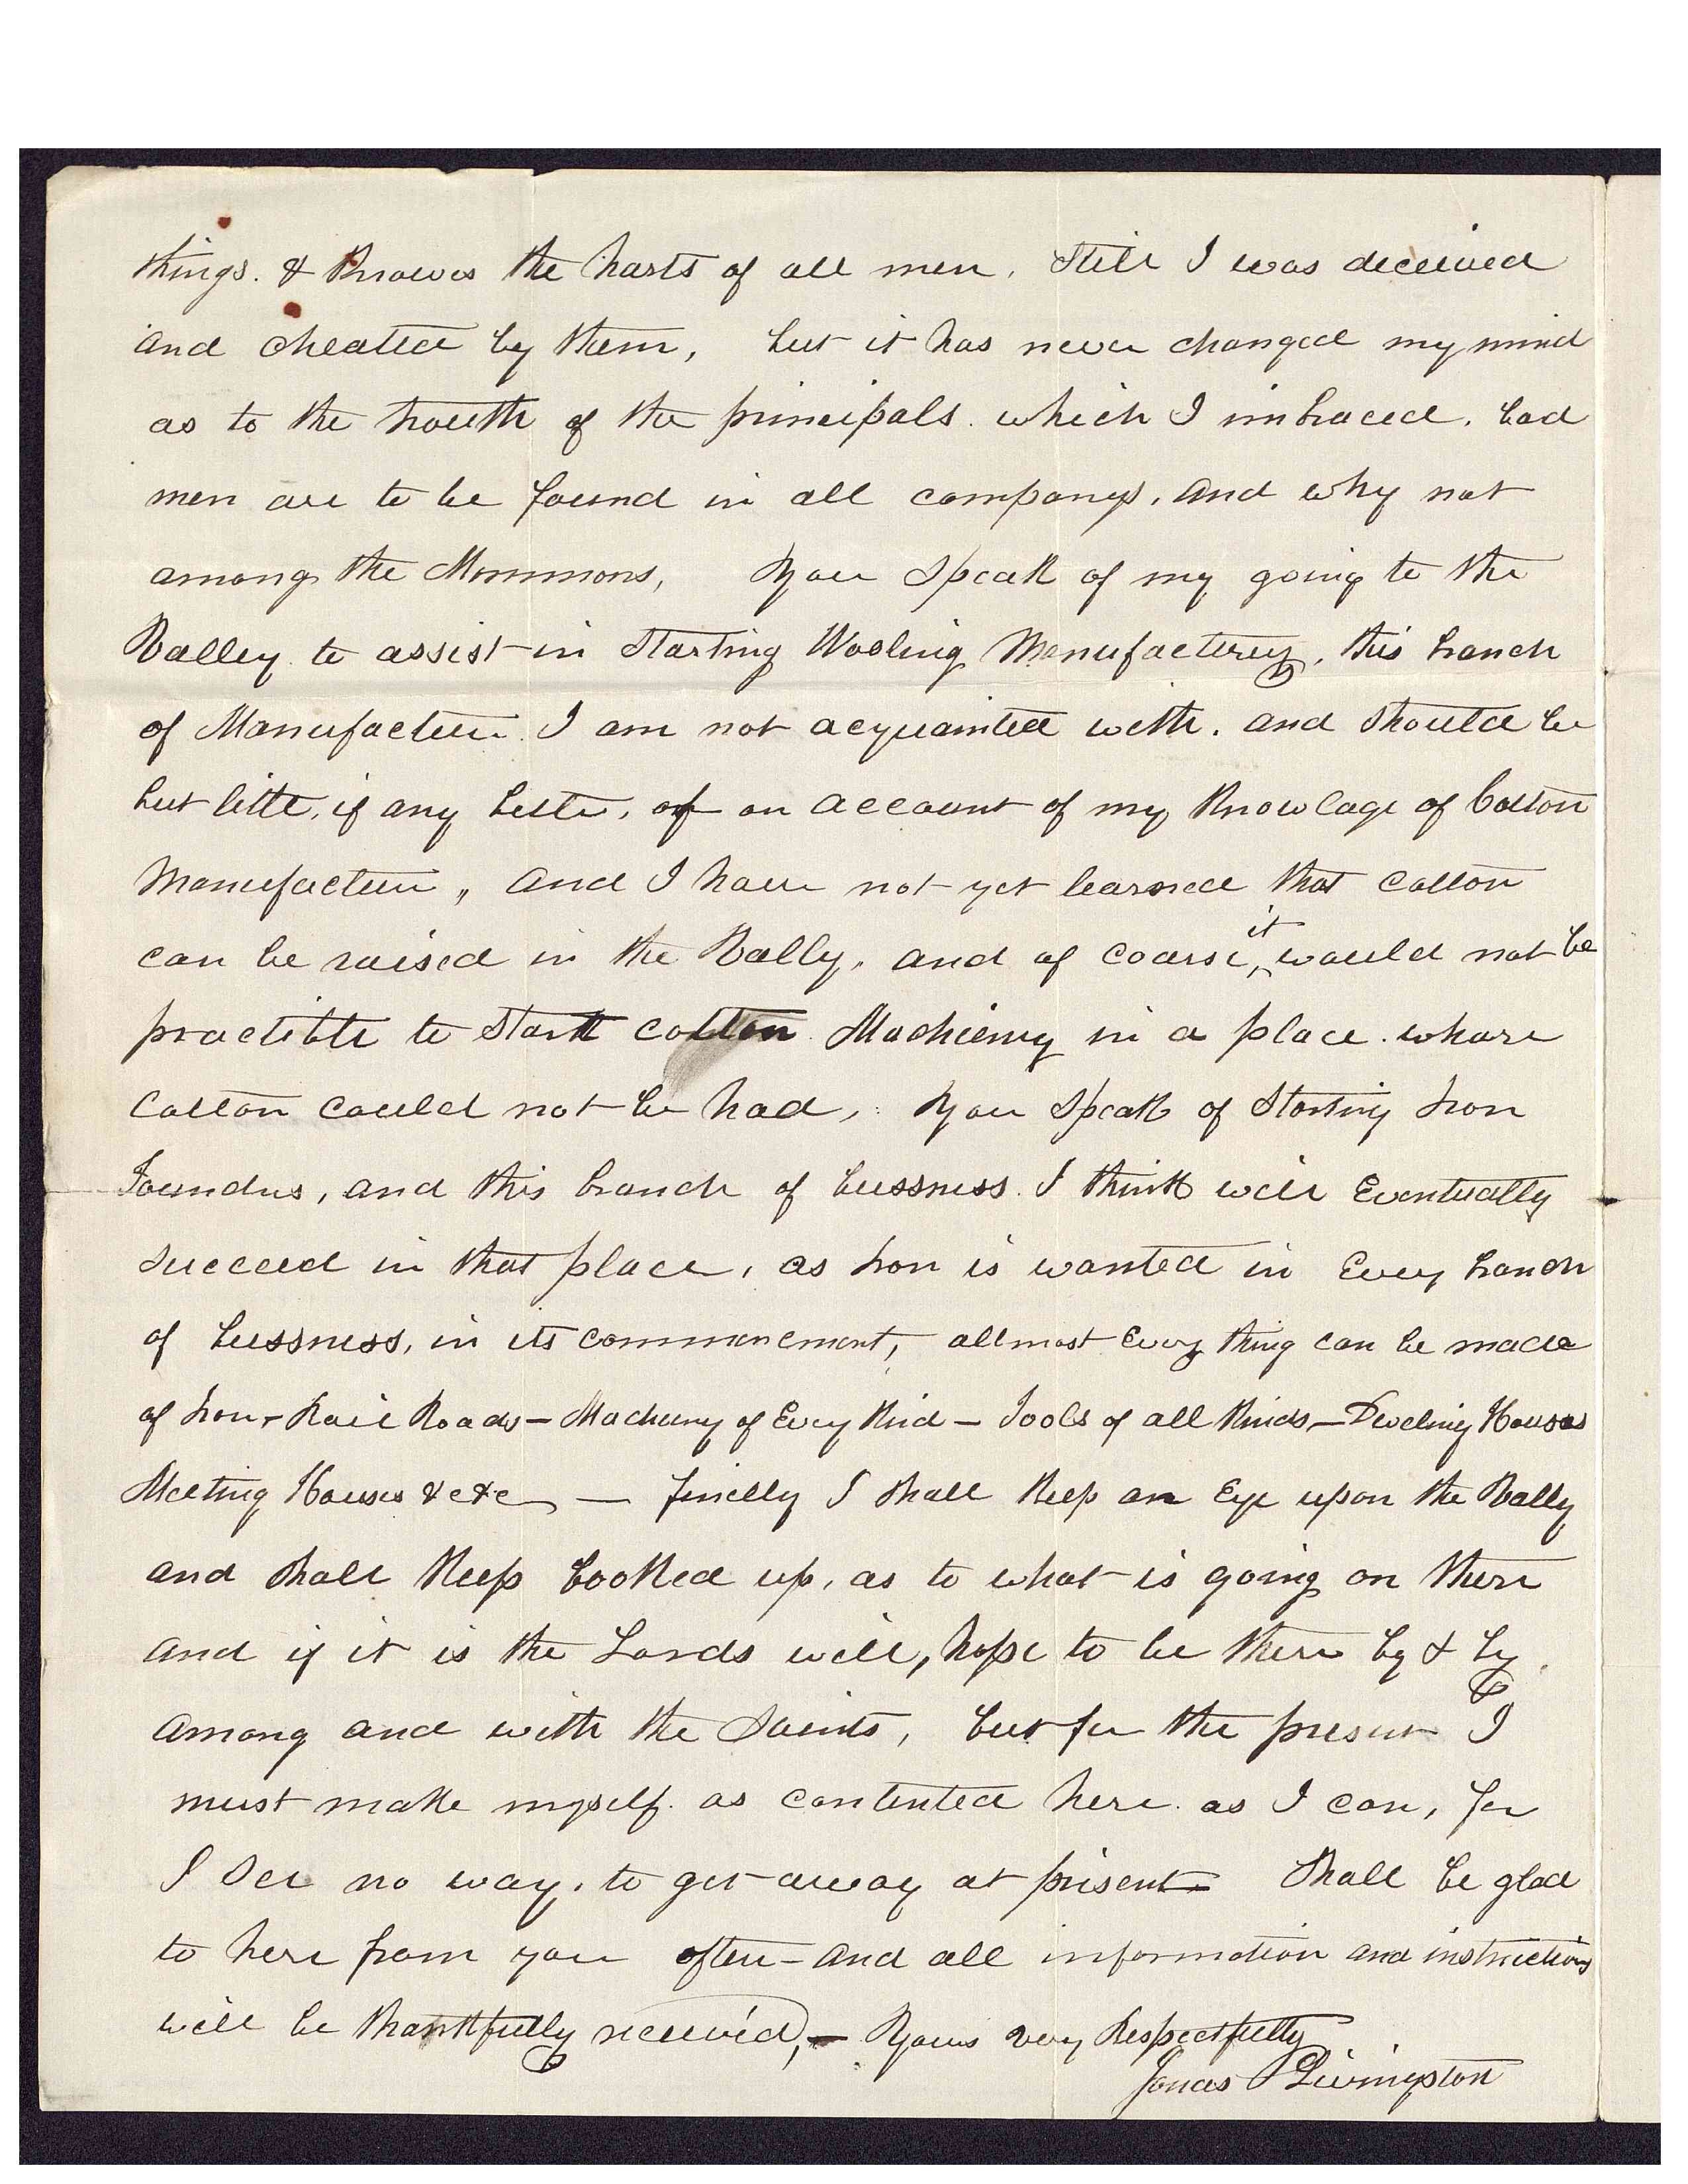 things. & knows the harts of all men. Still I was deceived
and cheated by them, but it has never changed my mind
as to the trouth of the principals. which I imbraced. bad
men are to be found in all companys. and why not
among the Mormmons, You speak of my going to the
Valley. to assist in starting Wooling Manufacterey, this branch
of Manufacture. I am not acquainted with. and should be
but little. if any better. on account of my knowlage of Cotton
Manufacture, and I have not yet learned that Cotton
can be raised in the Vally. and of coarse, it would not be
practible to start cotton Machienry in a place. whare
Cotton could not be had, You speak of starting Iron
Foundrs, and this branch of bussness. I think will Eventually
succeed in that place, as Iron is wanted in Every branch
of bussness. in its commencment, allmost Every thing can be made
of Iron - Rail Roads - Machinery of Every kind - Tools of all kinds - Dweling Houses
Meeting Houses &c &c — finelly I shall keep an Eye upon the Vally
and shall keep booked up. as to what is going on there
and if it is the Lords will, hope to be there by & by
among and with the Saints, but for the present I
must make myself. as contented here. as I can, for
I see no way. to get away at present - Shall be glad
to here from you often - and all information and instructions
will be thankfully received, - Yours very Respectfully
Jonas Livingston